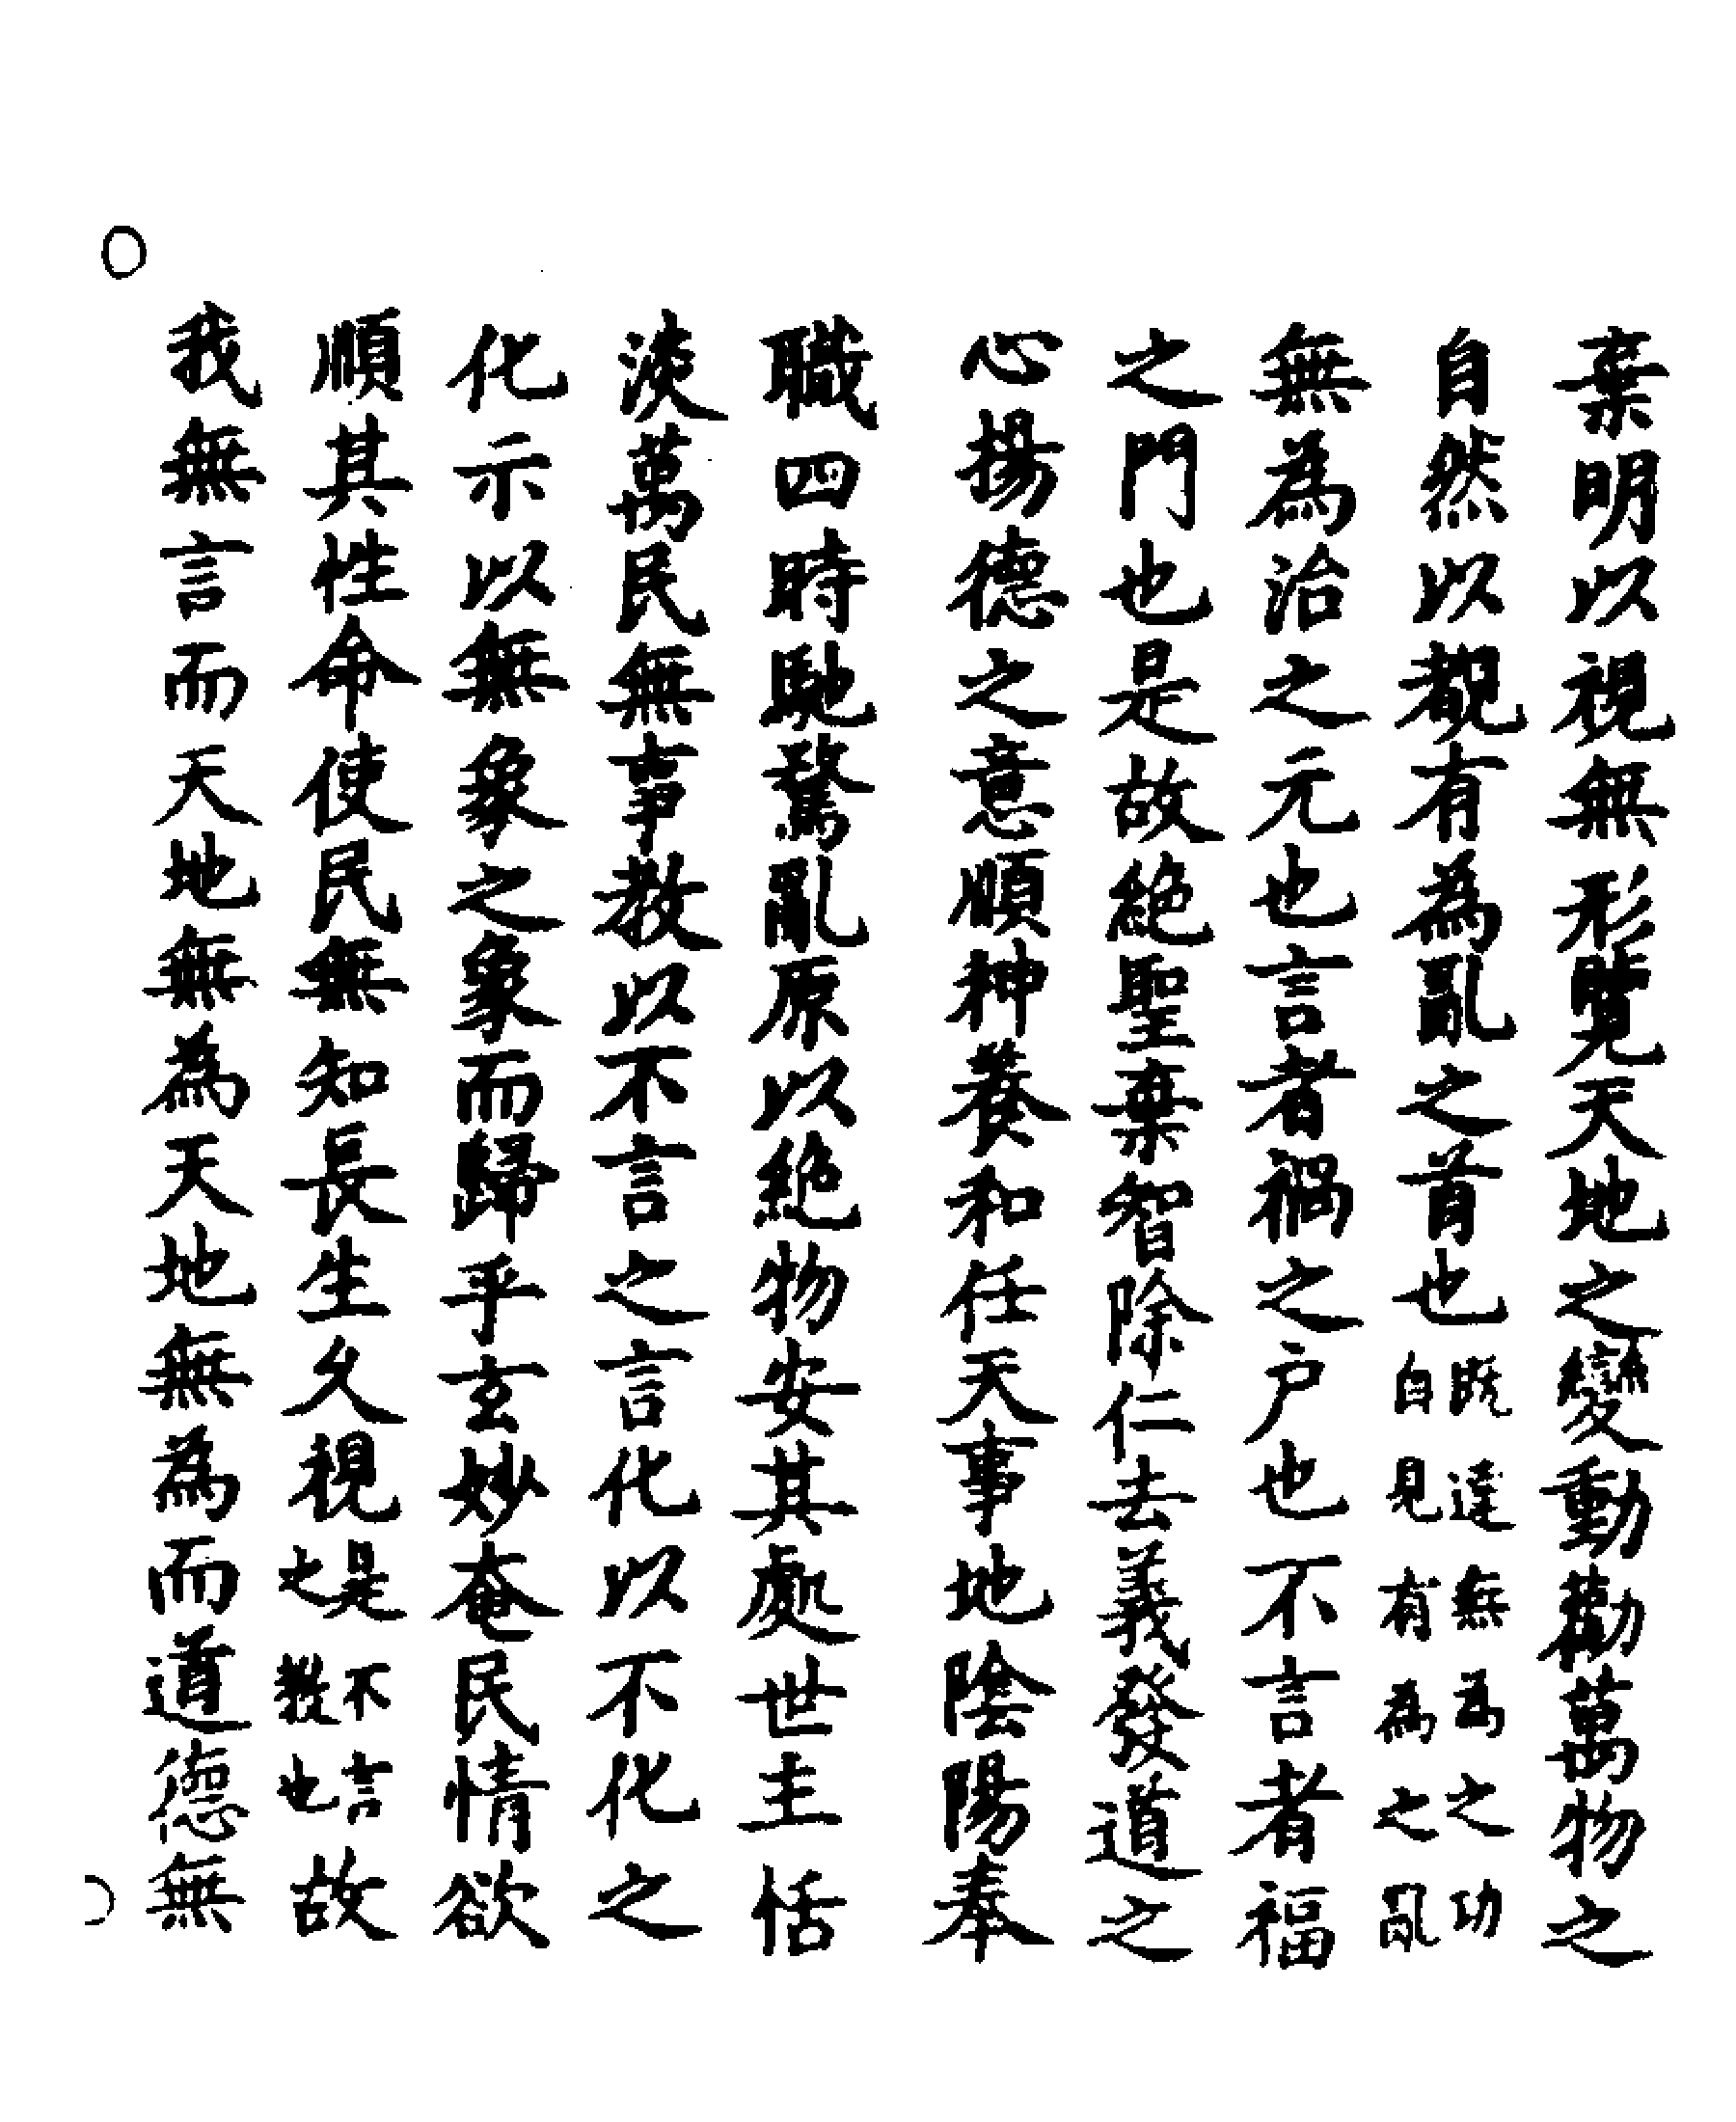 棄明以視無形覽天地之變動勸萬物之
自然以覩有為亂之首也既達無為之功自見有為之亂
無為治之元也言者禍之戶也不言者福
之門也是故絕聖棄智除仁去義發道之
心揚德之意順神養和任天事地陰陽奉
職四時馳騖亂原以絕物安其處世主恬
淡萬民無事教以不言之言化以不化之
化示以無象之象而歸乎玄妙奄民情欲
順其性命使民無知長生久視是不言之教也故
我無言而天地無為天地無為而道德無